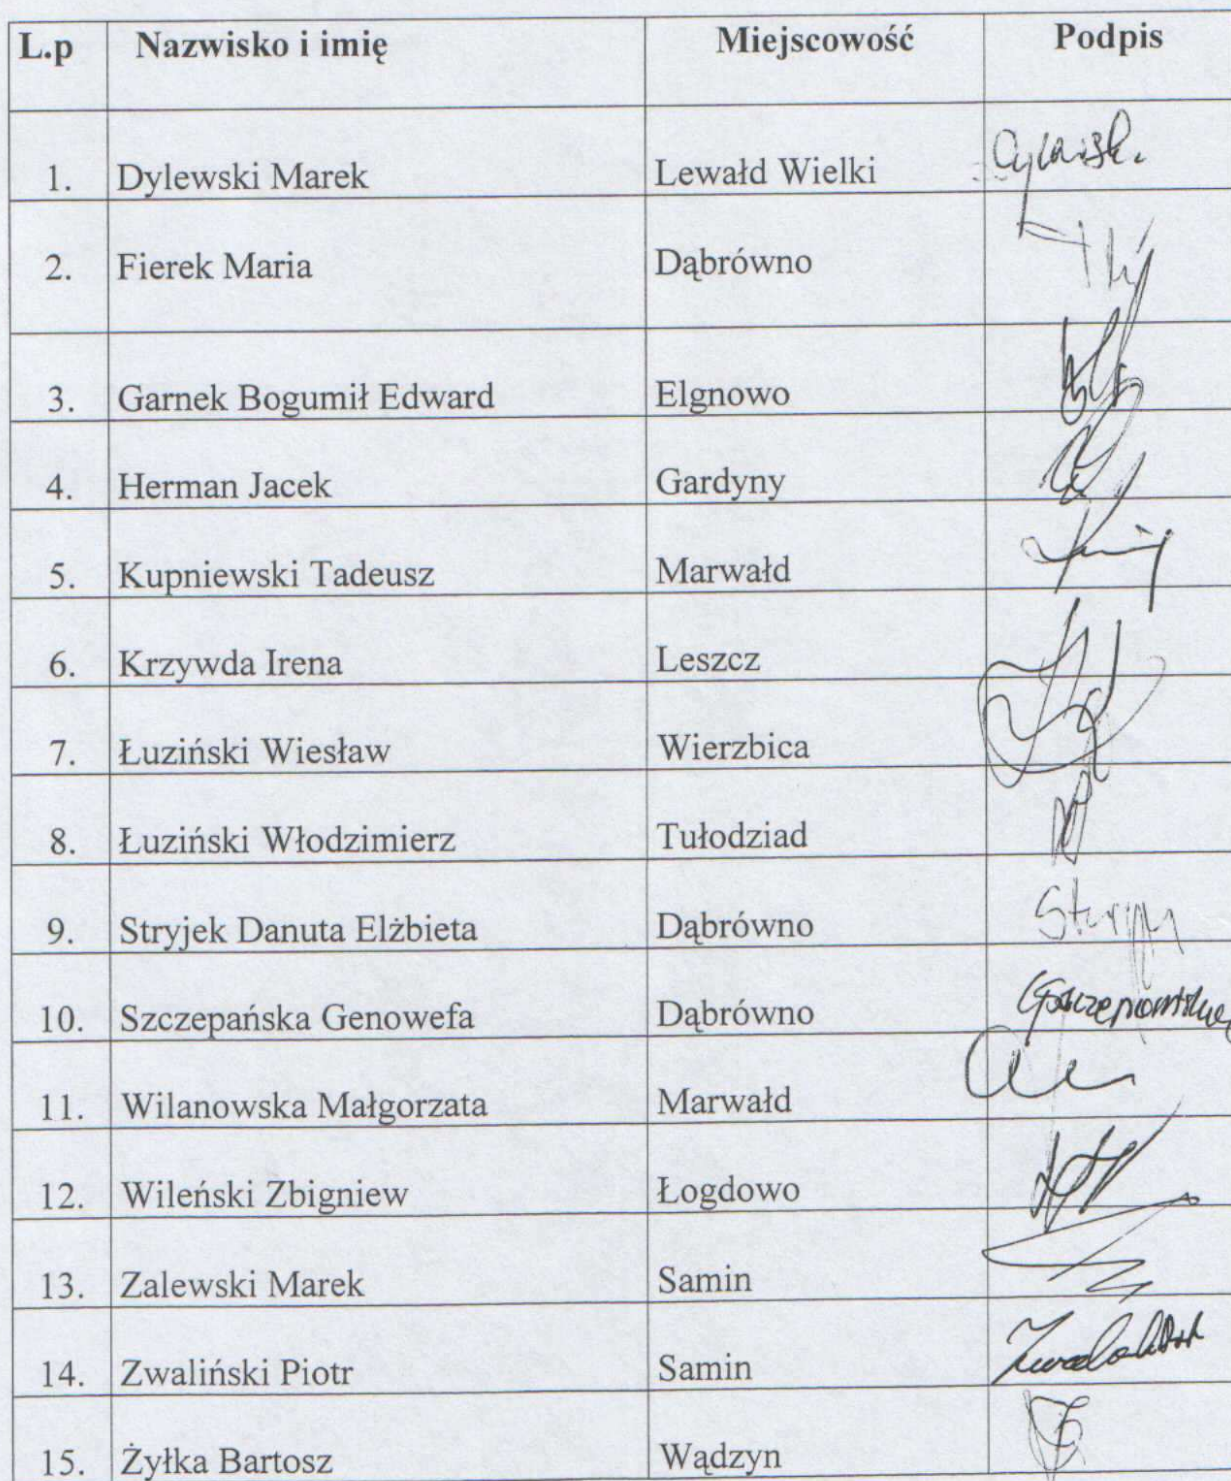 L.p Nazwisko i imię Miejscowość Podpis
1. Dylewski Marek Lewałd Wielki
2. Fierek Maria Dąbrówno
3. Garnek Bogumił Edward Elgnowo
4. Herman Jacek Gardyny
5. Kupniewski Tadeusz Marwałd
6. Krzywda Irena Leszcz
7. Łuziński Wiesław Wierzbica
8. Łuziński Włodzimierz Tułodziad
9. Stryjek Danuta Elżbieta Dąbrówno
10. Szczepańska Genowefa Dąbrówno
11. Wilanowska Małgorzata Marwałd
12. Wileński Zbigniew Łogdowo
13. Zalewski Marek Samin
14. Zwaliński Piotr Samin
15. Żyłka Bartosz Wądzyn